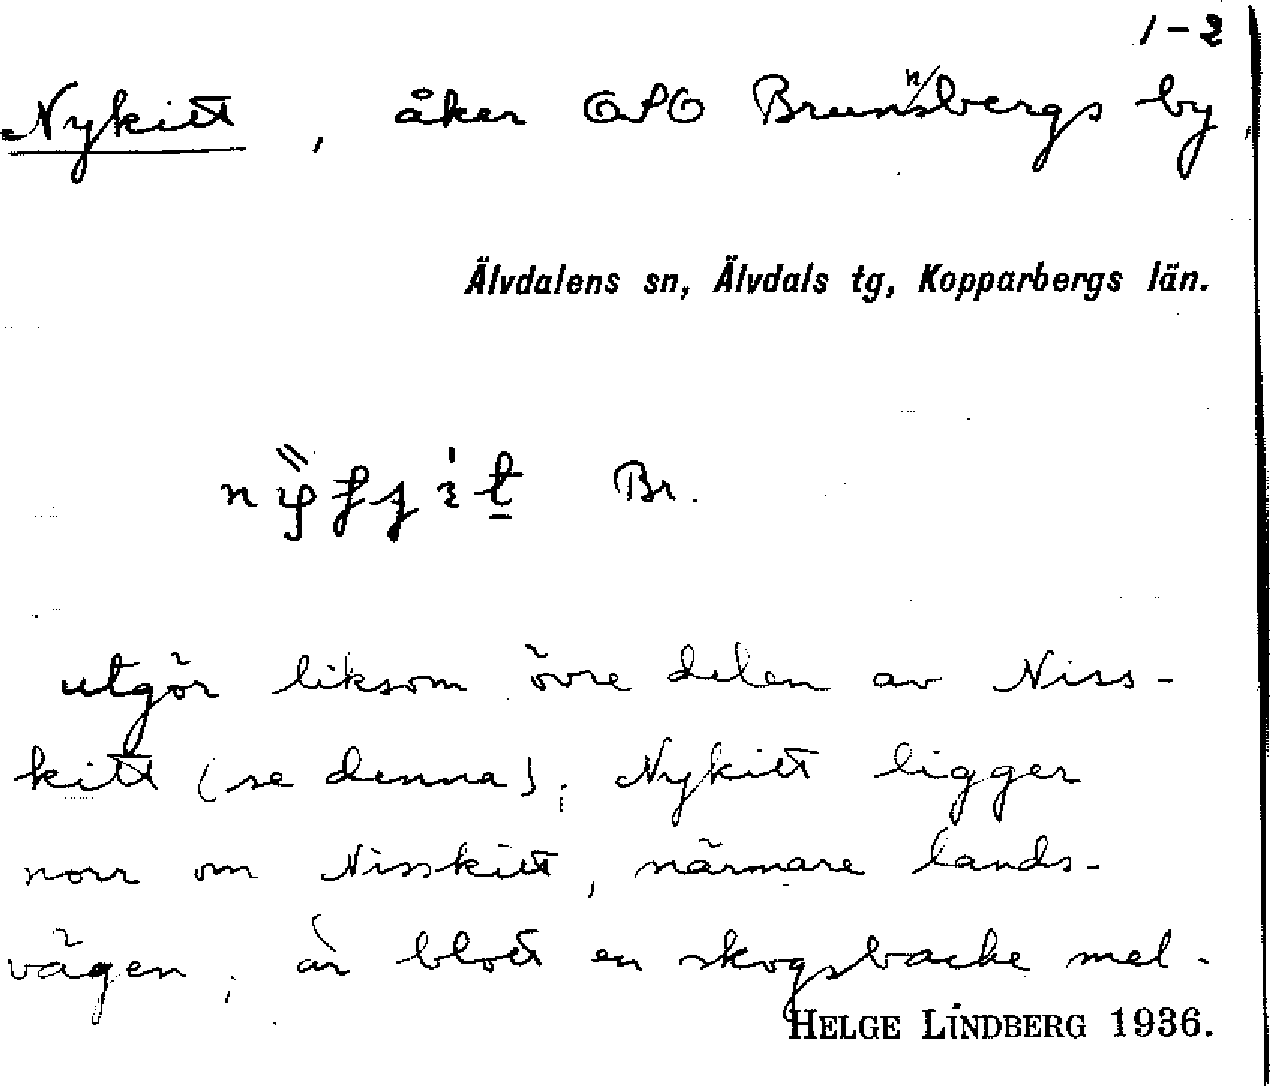 1-2
Nykitt, åker Brunnsbergs by
Älvdalens sn, Älvdals tg, Kopparbergs län.
Br.
utgör liksom övre delen av Niss-
kitt (se denna); Nykitt ligger
norr om Nisskitt, närmare lands-
vägen; är blott en skogsbacke mel-
HELGE LINDBERG 1936.